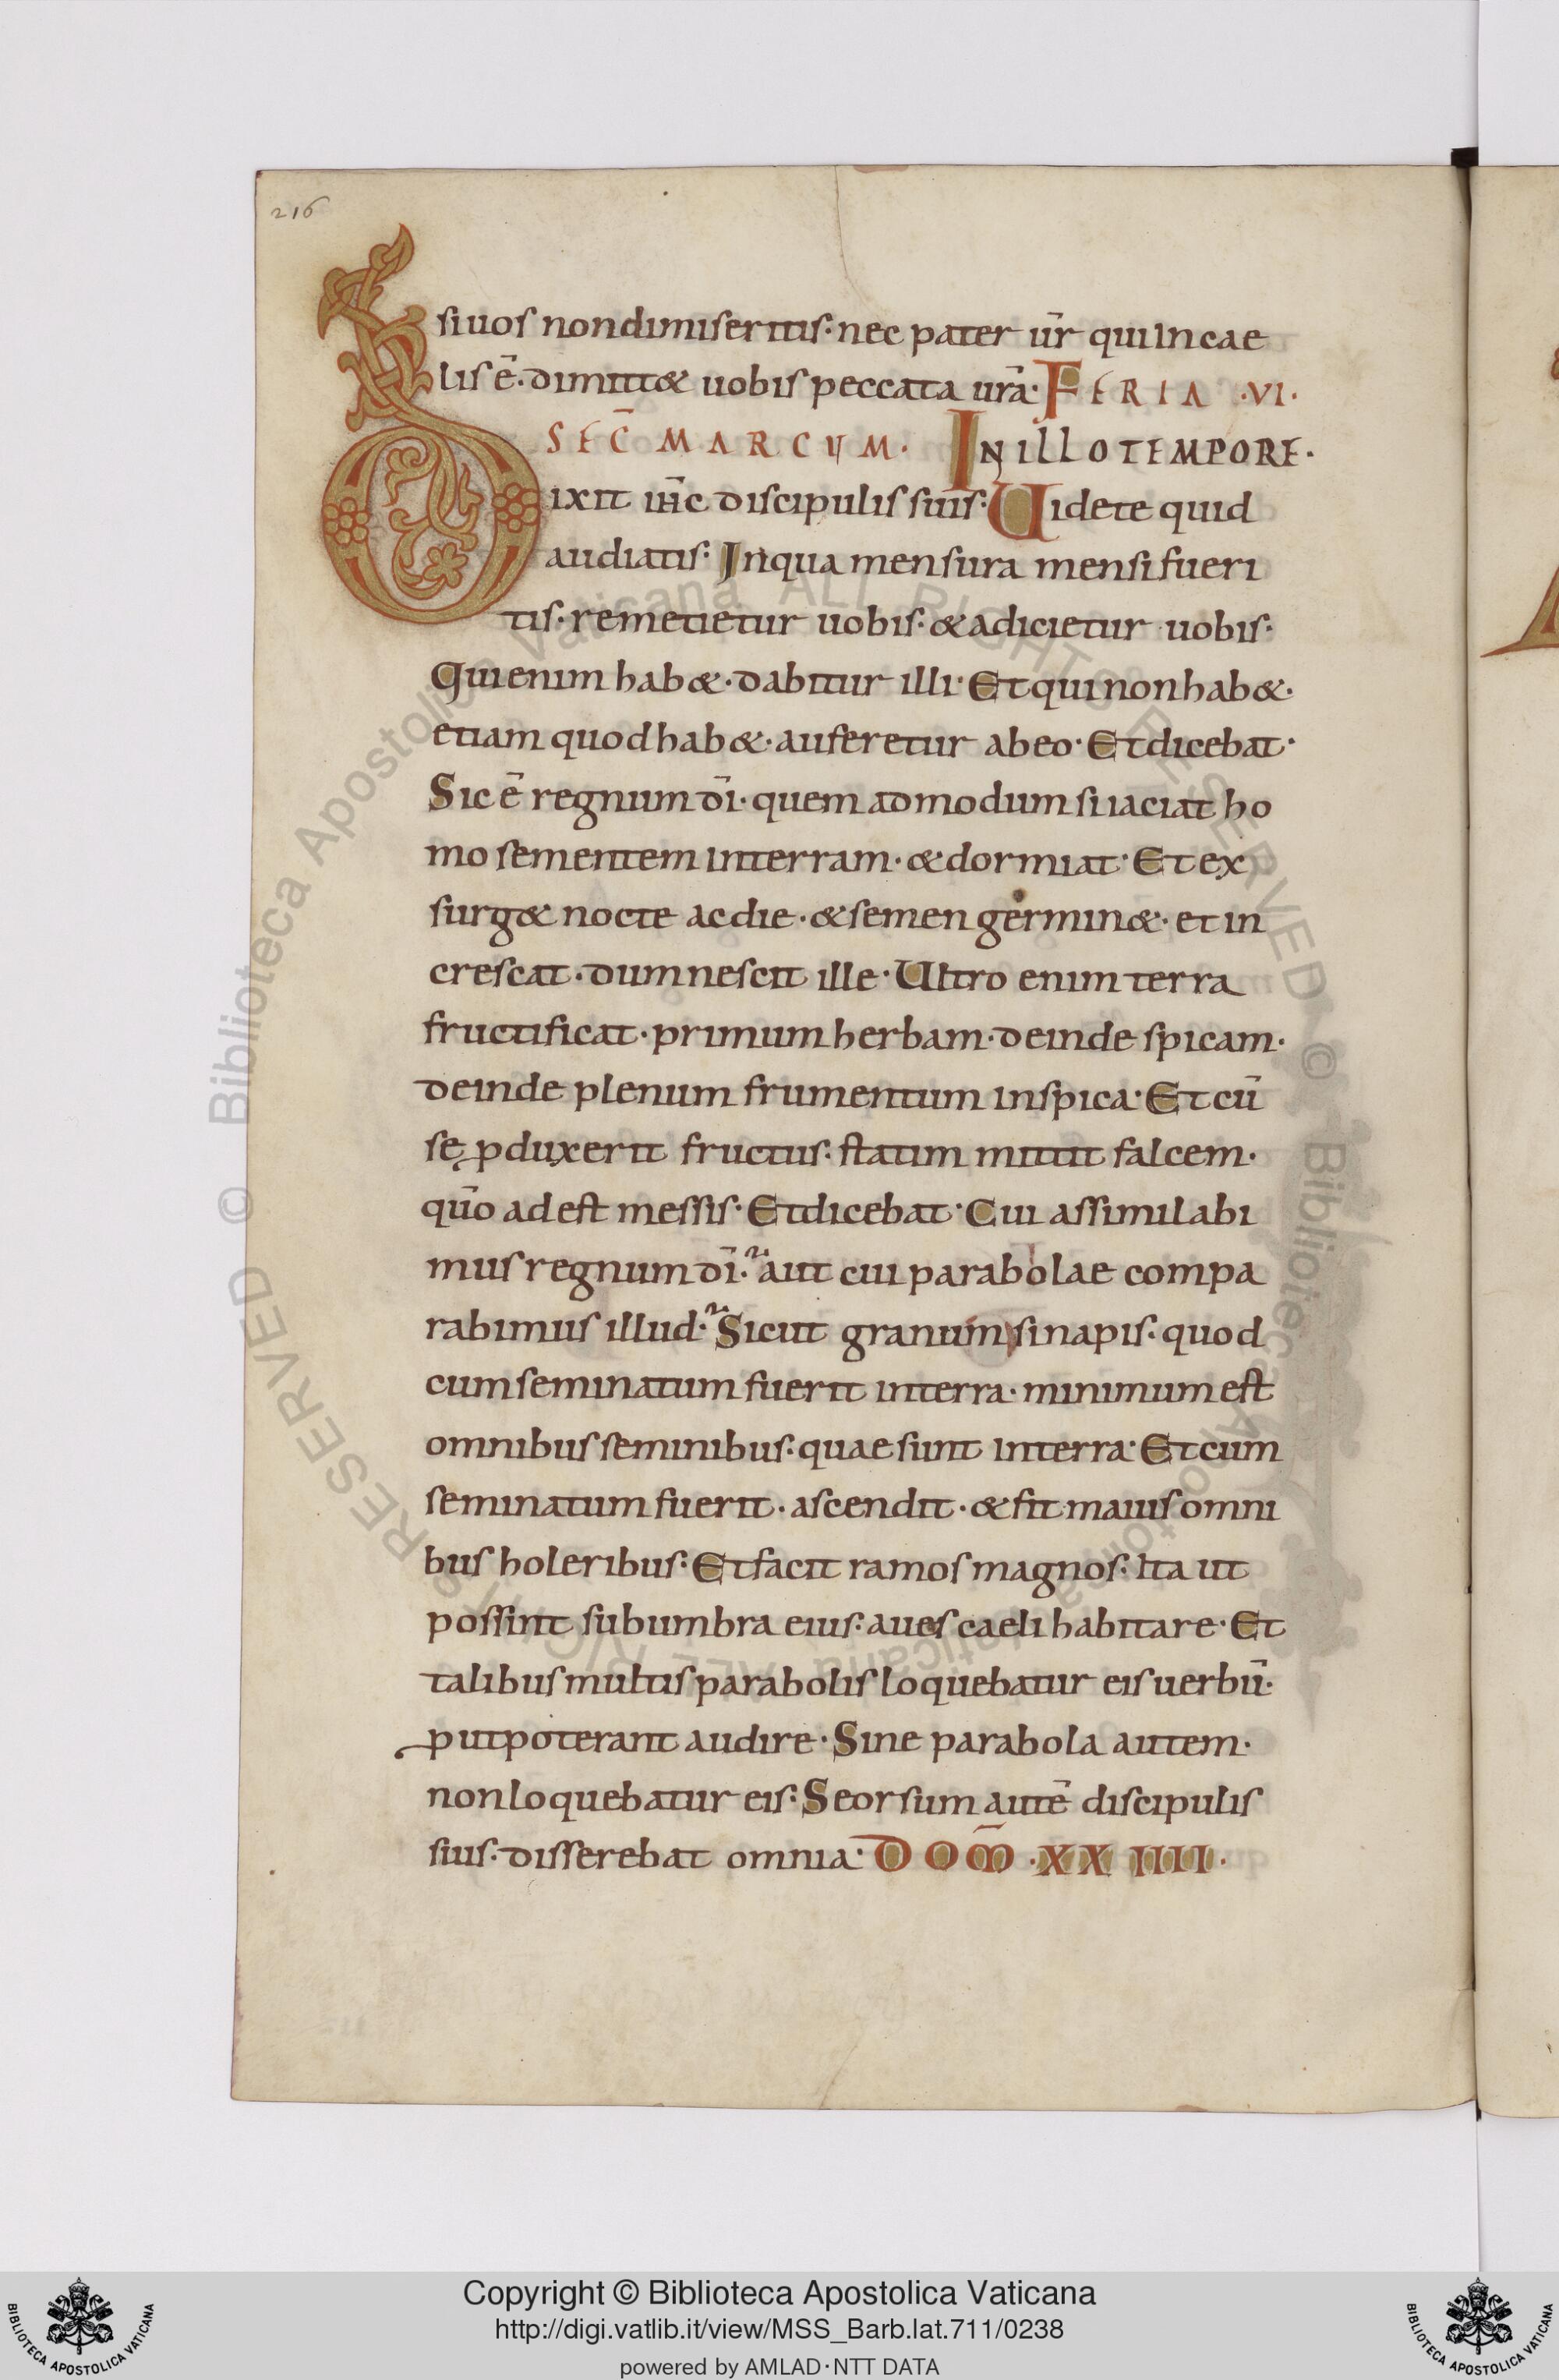 216
si uos non dimiseritis· nec pater ur̄ qui in cae
lis ē· dimitt& uobis peccata urā· FERIA ·VI·
SEC̄ MARCUM· IN ILLO TEMPORE·
Dixit ih̄c discipulis suis· Uidete quid
audiatis· In qua mensura mensi fueri
tis· remetietur uobis· & adicietur uobis·
Qui enim hab&· dabitur illi· Et qui non hab&·
etiam quod hab&· auferetur ab eo· Et dicebat·
Sic ē regnum dī· quem admodum si iaciat ho
mo sementem in terram· & dormiat· Et ex
surg& nocte ac die· & semen germin&· et in
crescat· dum nescit ille· Ultro enim terra
fructificat· primum herbam· deinde spicam·
deinde plenum frumentum in spica· Et cū
sę ꝓduxerit fructus· statim mittit falcem·
qūo adest messis· Et dicebat· Cui assimilabi
mus regnum dī· aut cui parabolae compa
rabimus illud· Sicut granum sinapis· quod
cum seminatum fuerit in terra· minimum est
omnibus seminibus· quae sunt in terra· Et cum
seminatum fuerit· ascendit· & fit maius omni
bus holeribus· Et facit ramos magnos· Ita ut
possint sub umbra eius· aues caeli habitare· Et
talibus multis parabolis loquebatur eis uerbū·
ꝓut poterant audire· Sine parabola autem·
non loquebatur eis· Seorsum autē discipulis
suis· disserebat omnia· DOM̄ ·XXIIII·
Copyright © Biblioteca Apostolica Vaticana
http://digi.vatlib.it/view/MSS_Barb.lat.711/0238
powered by AMLAD·NTT DATA
BIBLIOTECA APOSTOLICA VATICANA
BIBLIOTECA APOSTOLICA VATICANA
© Biblioteca Apostolica Vaticana ALL RIGHTS RESERVED © Biblioteca Apostolica Vaticana ALL RIGHTS RESERVED